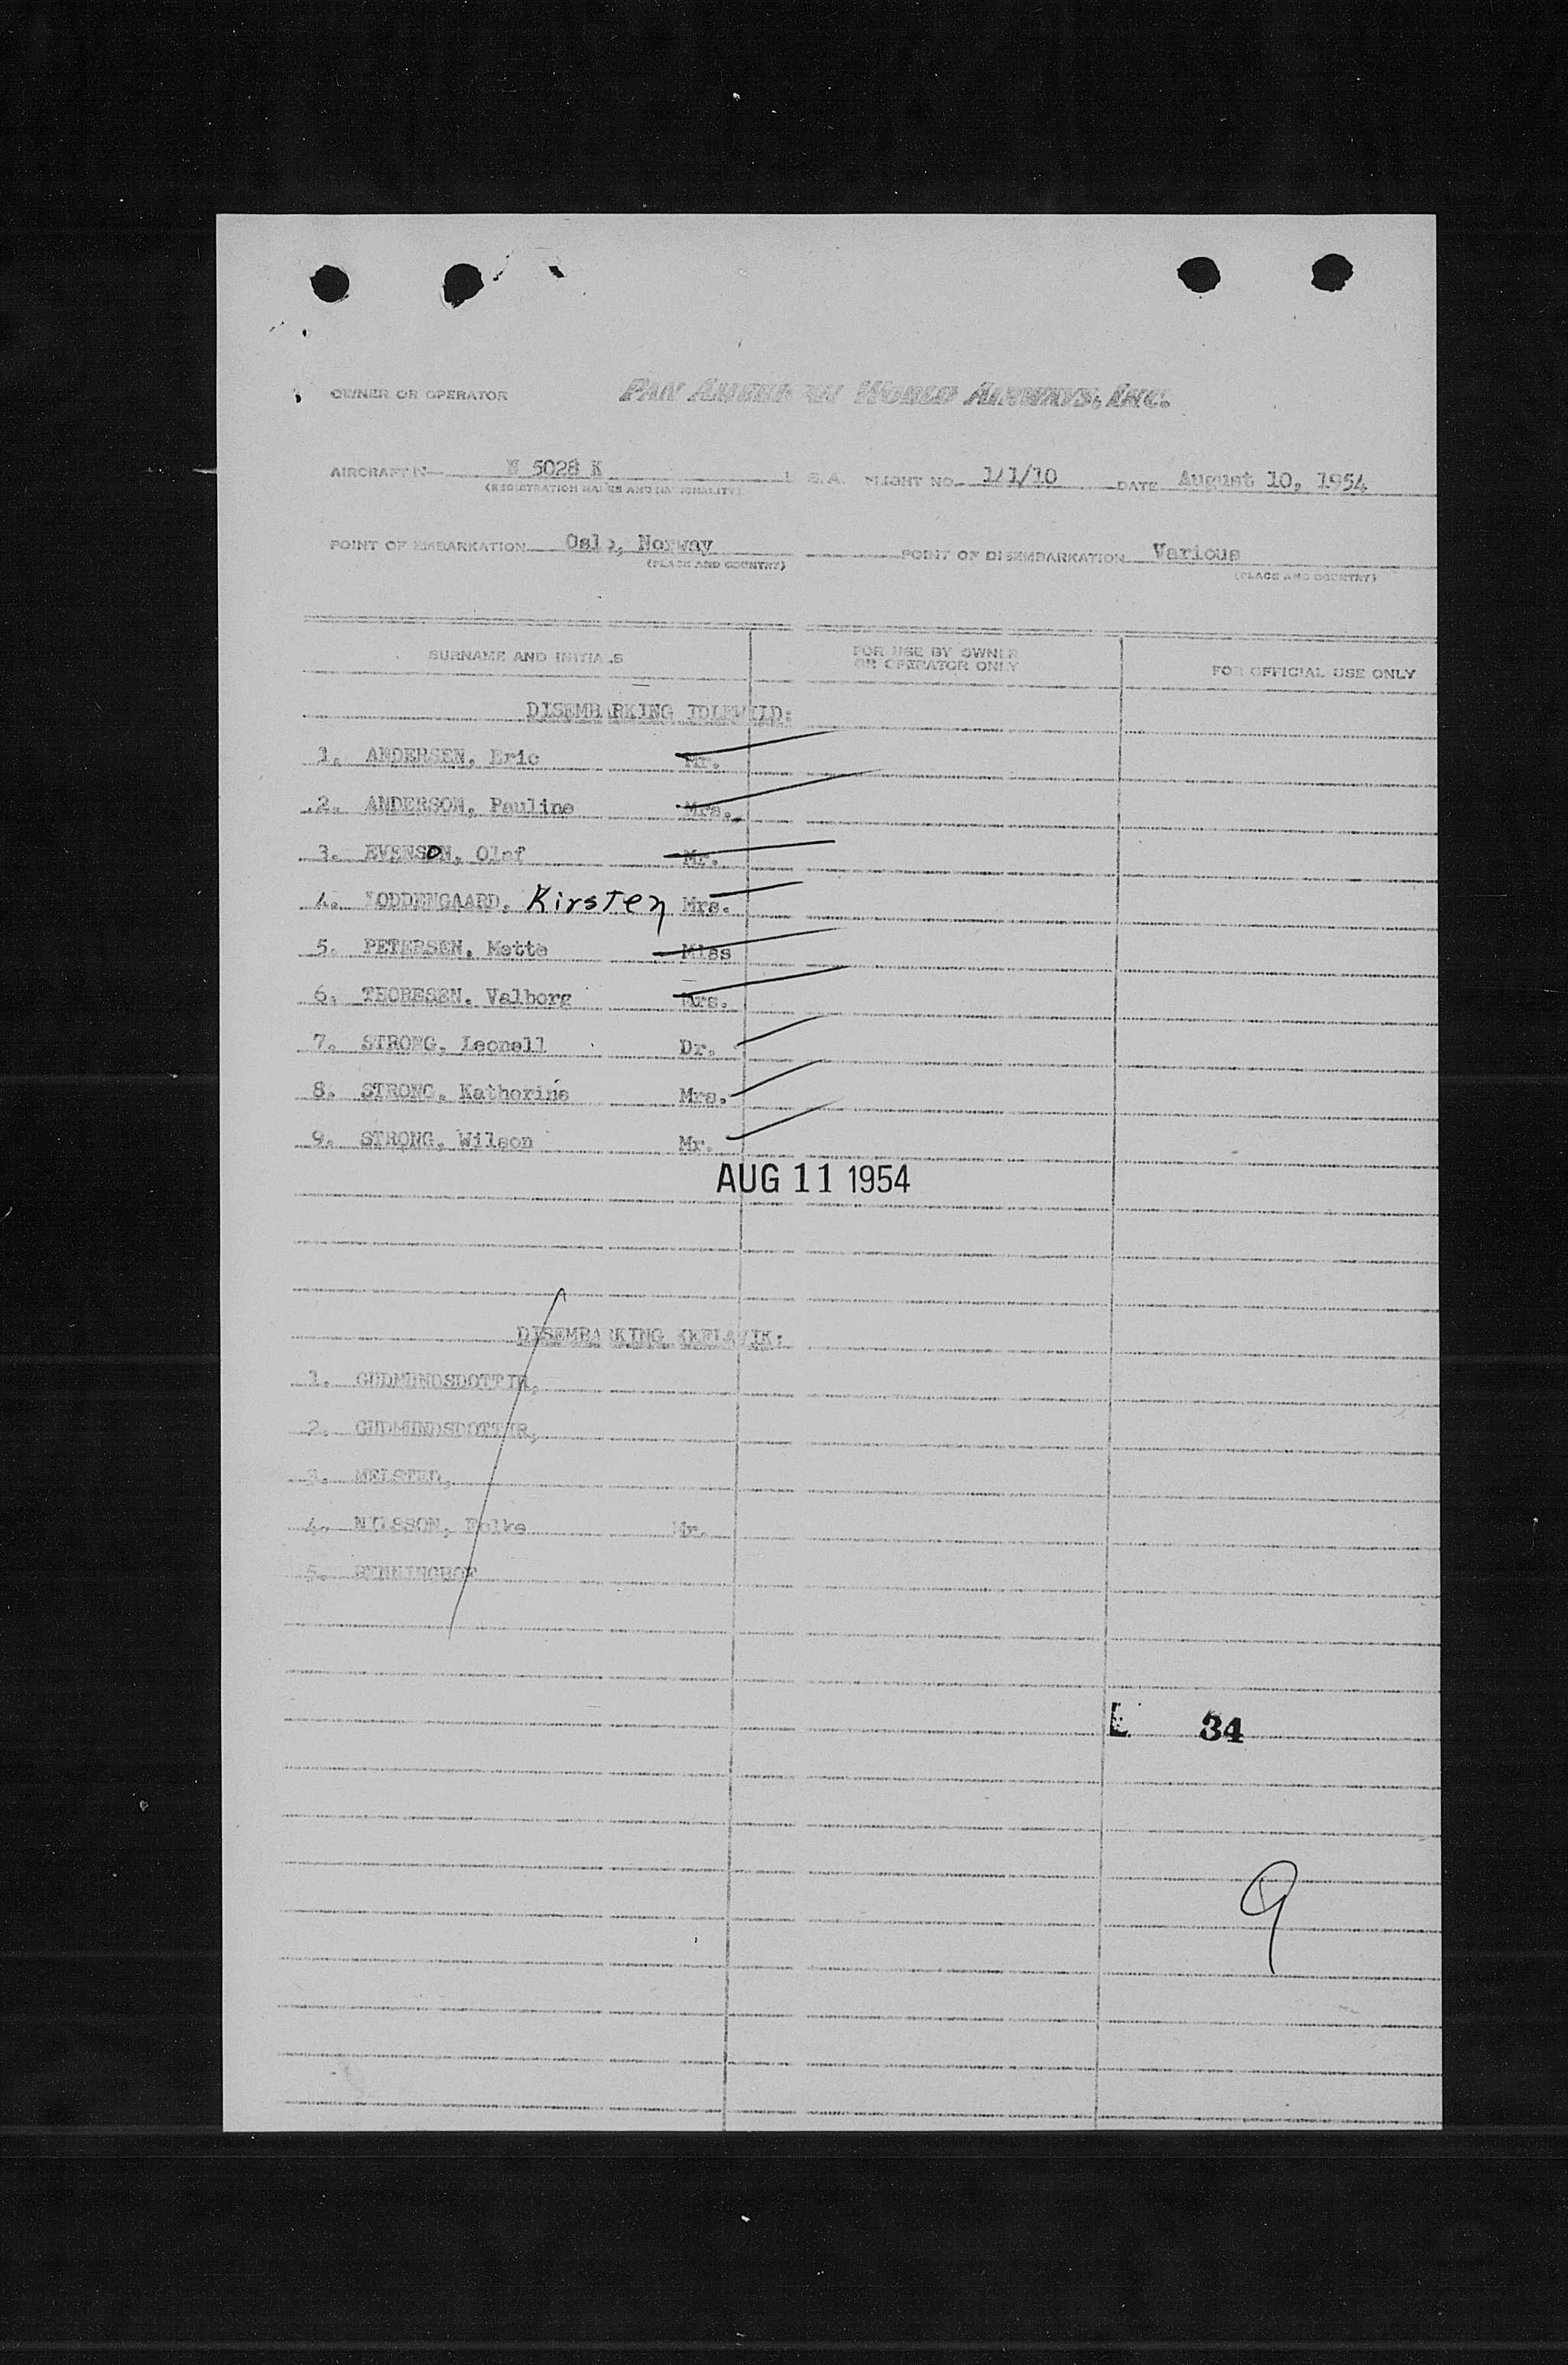 OWNER OR OPERATOR PAN AMERICAN WORLD AIRWAYS, INC.
AIRCRAFT N 5028 K U. S. A. FLIGHT NO. 1/1/10 DATE August 10, 1954
(REGISTRATION MARKS AND NATIONALITY)
POINT OF EMBARKATION Oslo, Norway POINT OF DISEMBARKATION Various
(PLACE AND COUNTRY) (PLACE AND COUNTRY)
SURNAME AND INITIALS FOR USE BY OWNER OR OPERATOR ONLY FOR OFFICIAL USE ONLY
DISEMBARKING IDLEWILD:
1. ANDERSEN, Eric Mr.
2. ANDERSON, Pauline Mrs.
3. EVENSON, Olaf Mr.
4. Kirsten Mrs.
5. PETERSEN, Mette Miss
6. THORESEN, Valborg Mrs.
7. STRONG, Leonell Dr.
8. STRONG, Katherine Mrs.
9. STRONG, Wilson Mr.
AUG 11 1954
DISEMBARKING KEFLAVIK:
1. GUDMUNDSDOTTIR,
2. GUDMUNDSDOTTIR,
3. MELSTED,
4. NILSSON, Folke Mr.
5.
34
9